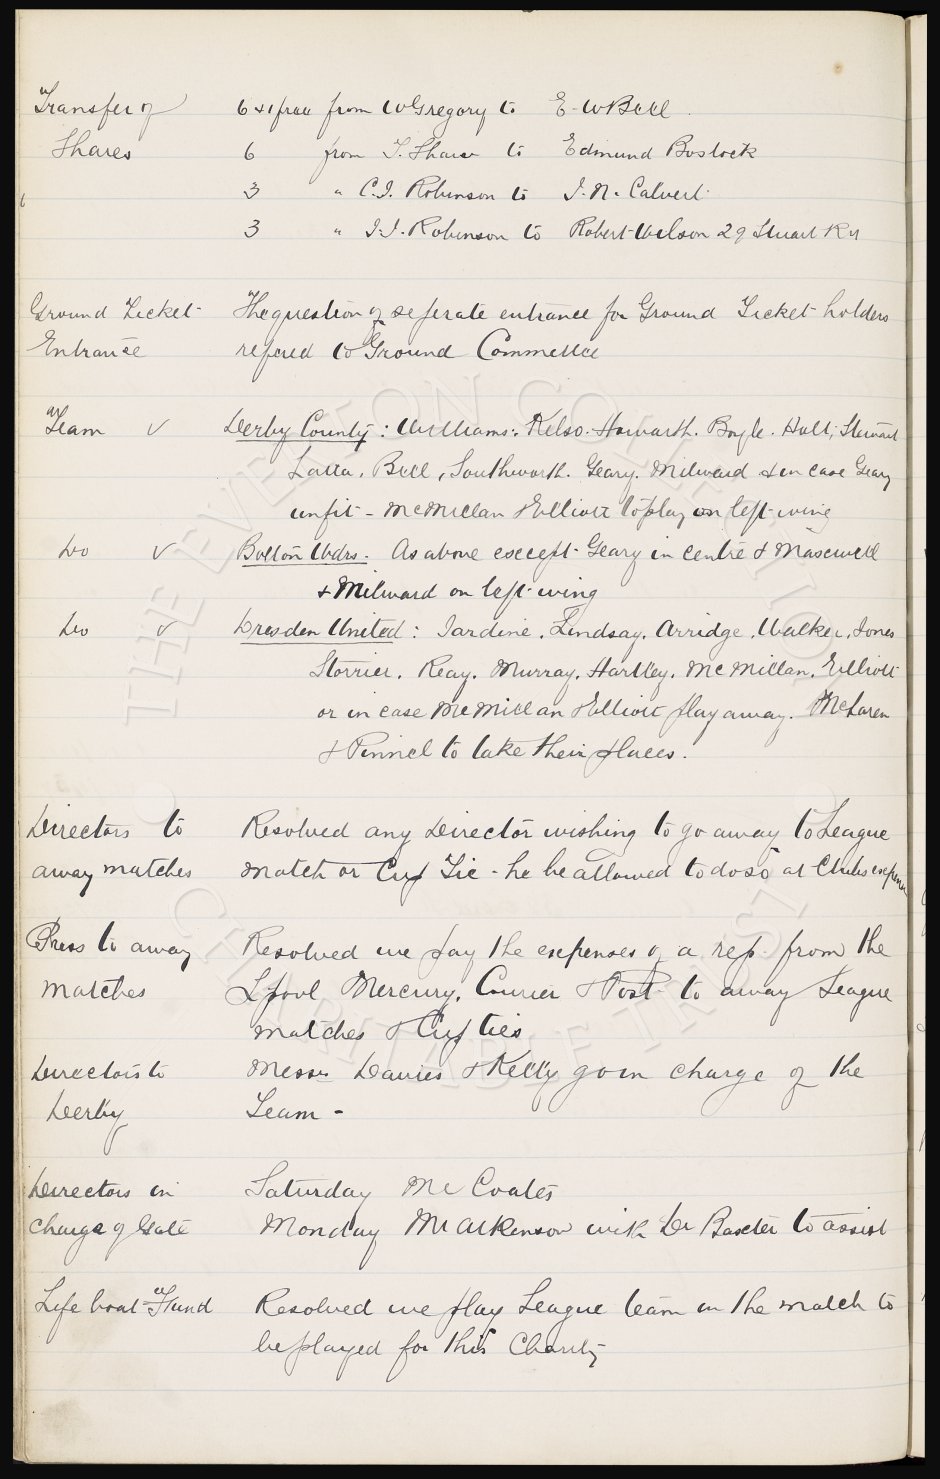 Transfer of 6 & 1 free from W Gregory to E. W Bell
Shares 6 from T. Shaw to Edmund Bostock
3 " C.J. Robinson to J. N. Calvert
3 " J.J. Robinson to Robert Wilson 29 Stuart Rd
Ground Ticket The question of seperate entrance for Ground Ticket holders
Entrance refered to Ground Committee
Team ✓ Derby County: Williams. Kelso. Howarth. Boyle. Holt, Stewart
Latta, Bell, Southworth. Geary. Milward & in case Geary
unfit - McMillan & Elliott to play on left wing
Do ✓ Bolton Wdrs. As above except Geary in centre & Maxwell
& Milward on left wing
Do ✓ Dresden United: Jardine, Lindsay, Arridge, Walker, Jones
Storrier, Reay, Murray, Hartley, McMillan, Elliott
or in case McMillan & Elliott play away. McLaren
& Pinnel to take their places.
Directors to Resolved any Director wishing to go away to League
away matches match or Cup Tie - he be allowed to do so at Clubs expense
Press to away Resolved we pay the expenses of a rep. from the
matches L'pool Mercury, Courier & Post to away League
matches & Cup ties
Directors to Messrs Davies & Kelly go in charge of the
Derby Team -
Directors in Saturday Mr Coates
charge of Gate Monday Mr Atkinson with Dr Baxter to assist
Life boat Fund Resolved we play League team in the match to
be played for this Charity
THE EVERTON COLLECTION
CHARITABLE TRUST